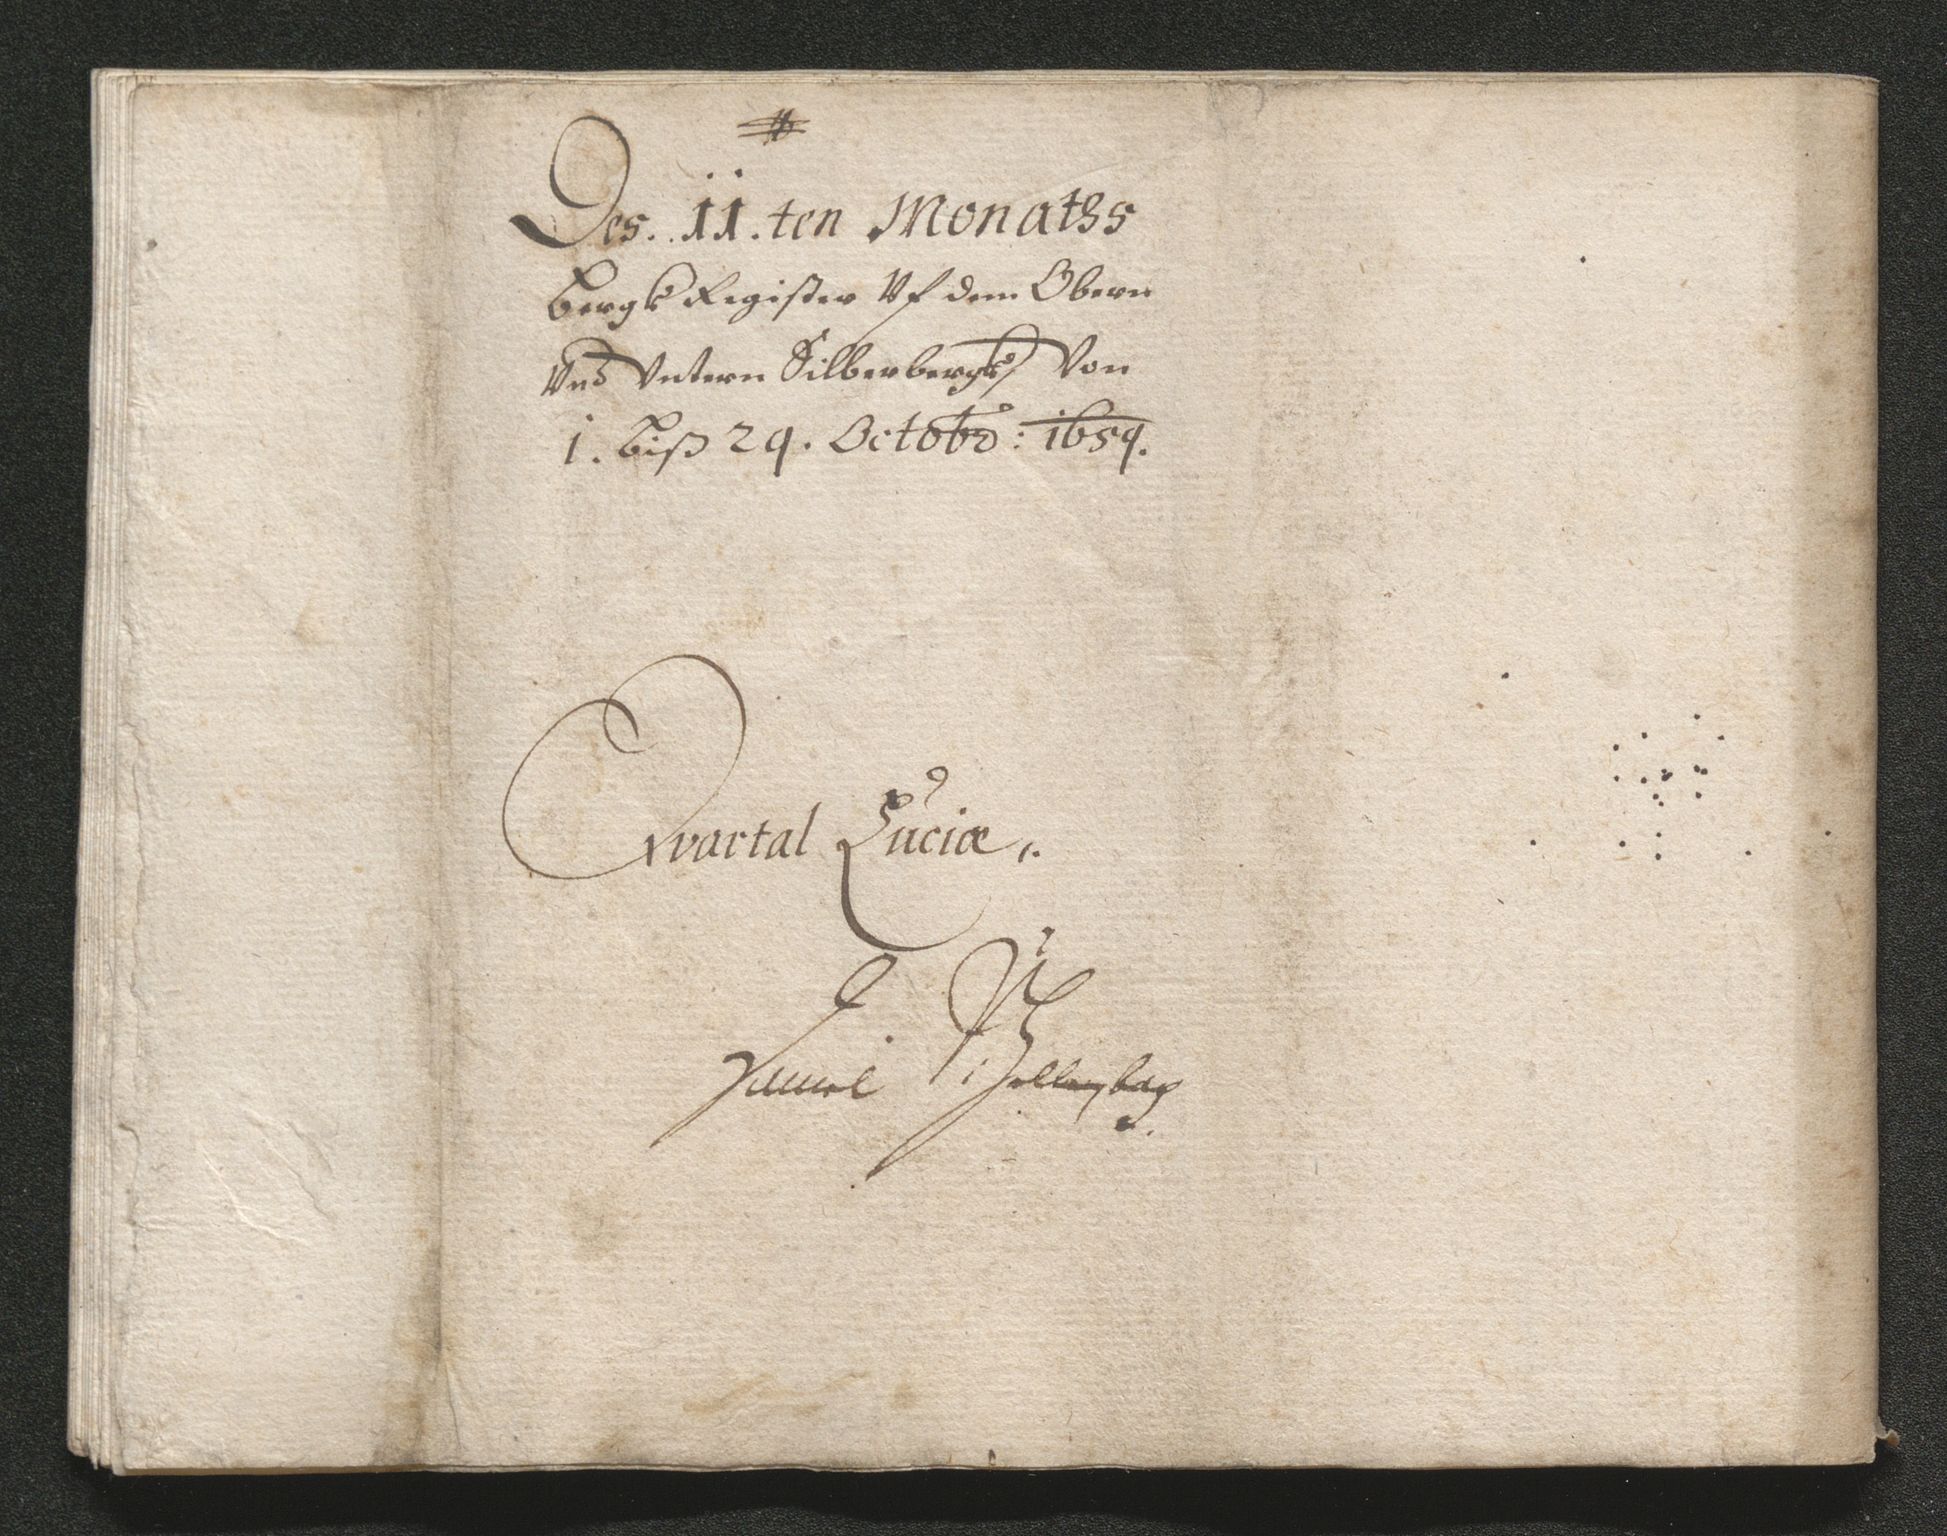 Des. 11. ten Monaths
Bergk Register Vf dem Obern
Vnd Vntern Silberbergk / Von
1. biß 29. Octobr: 1659.
Qvartal Luciæ